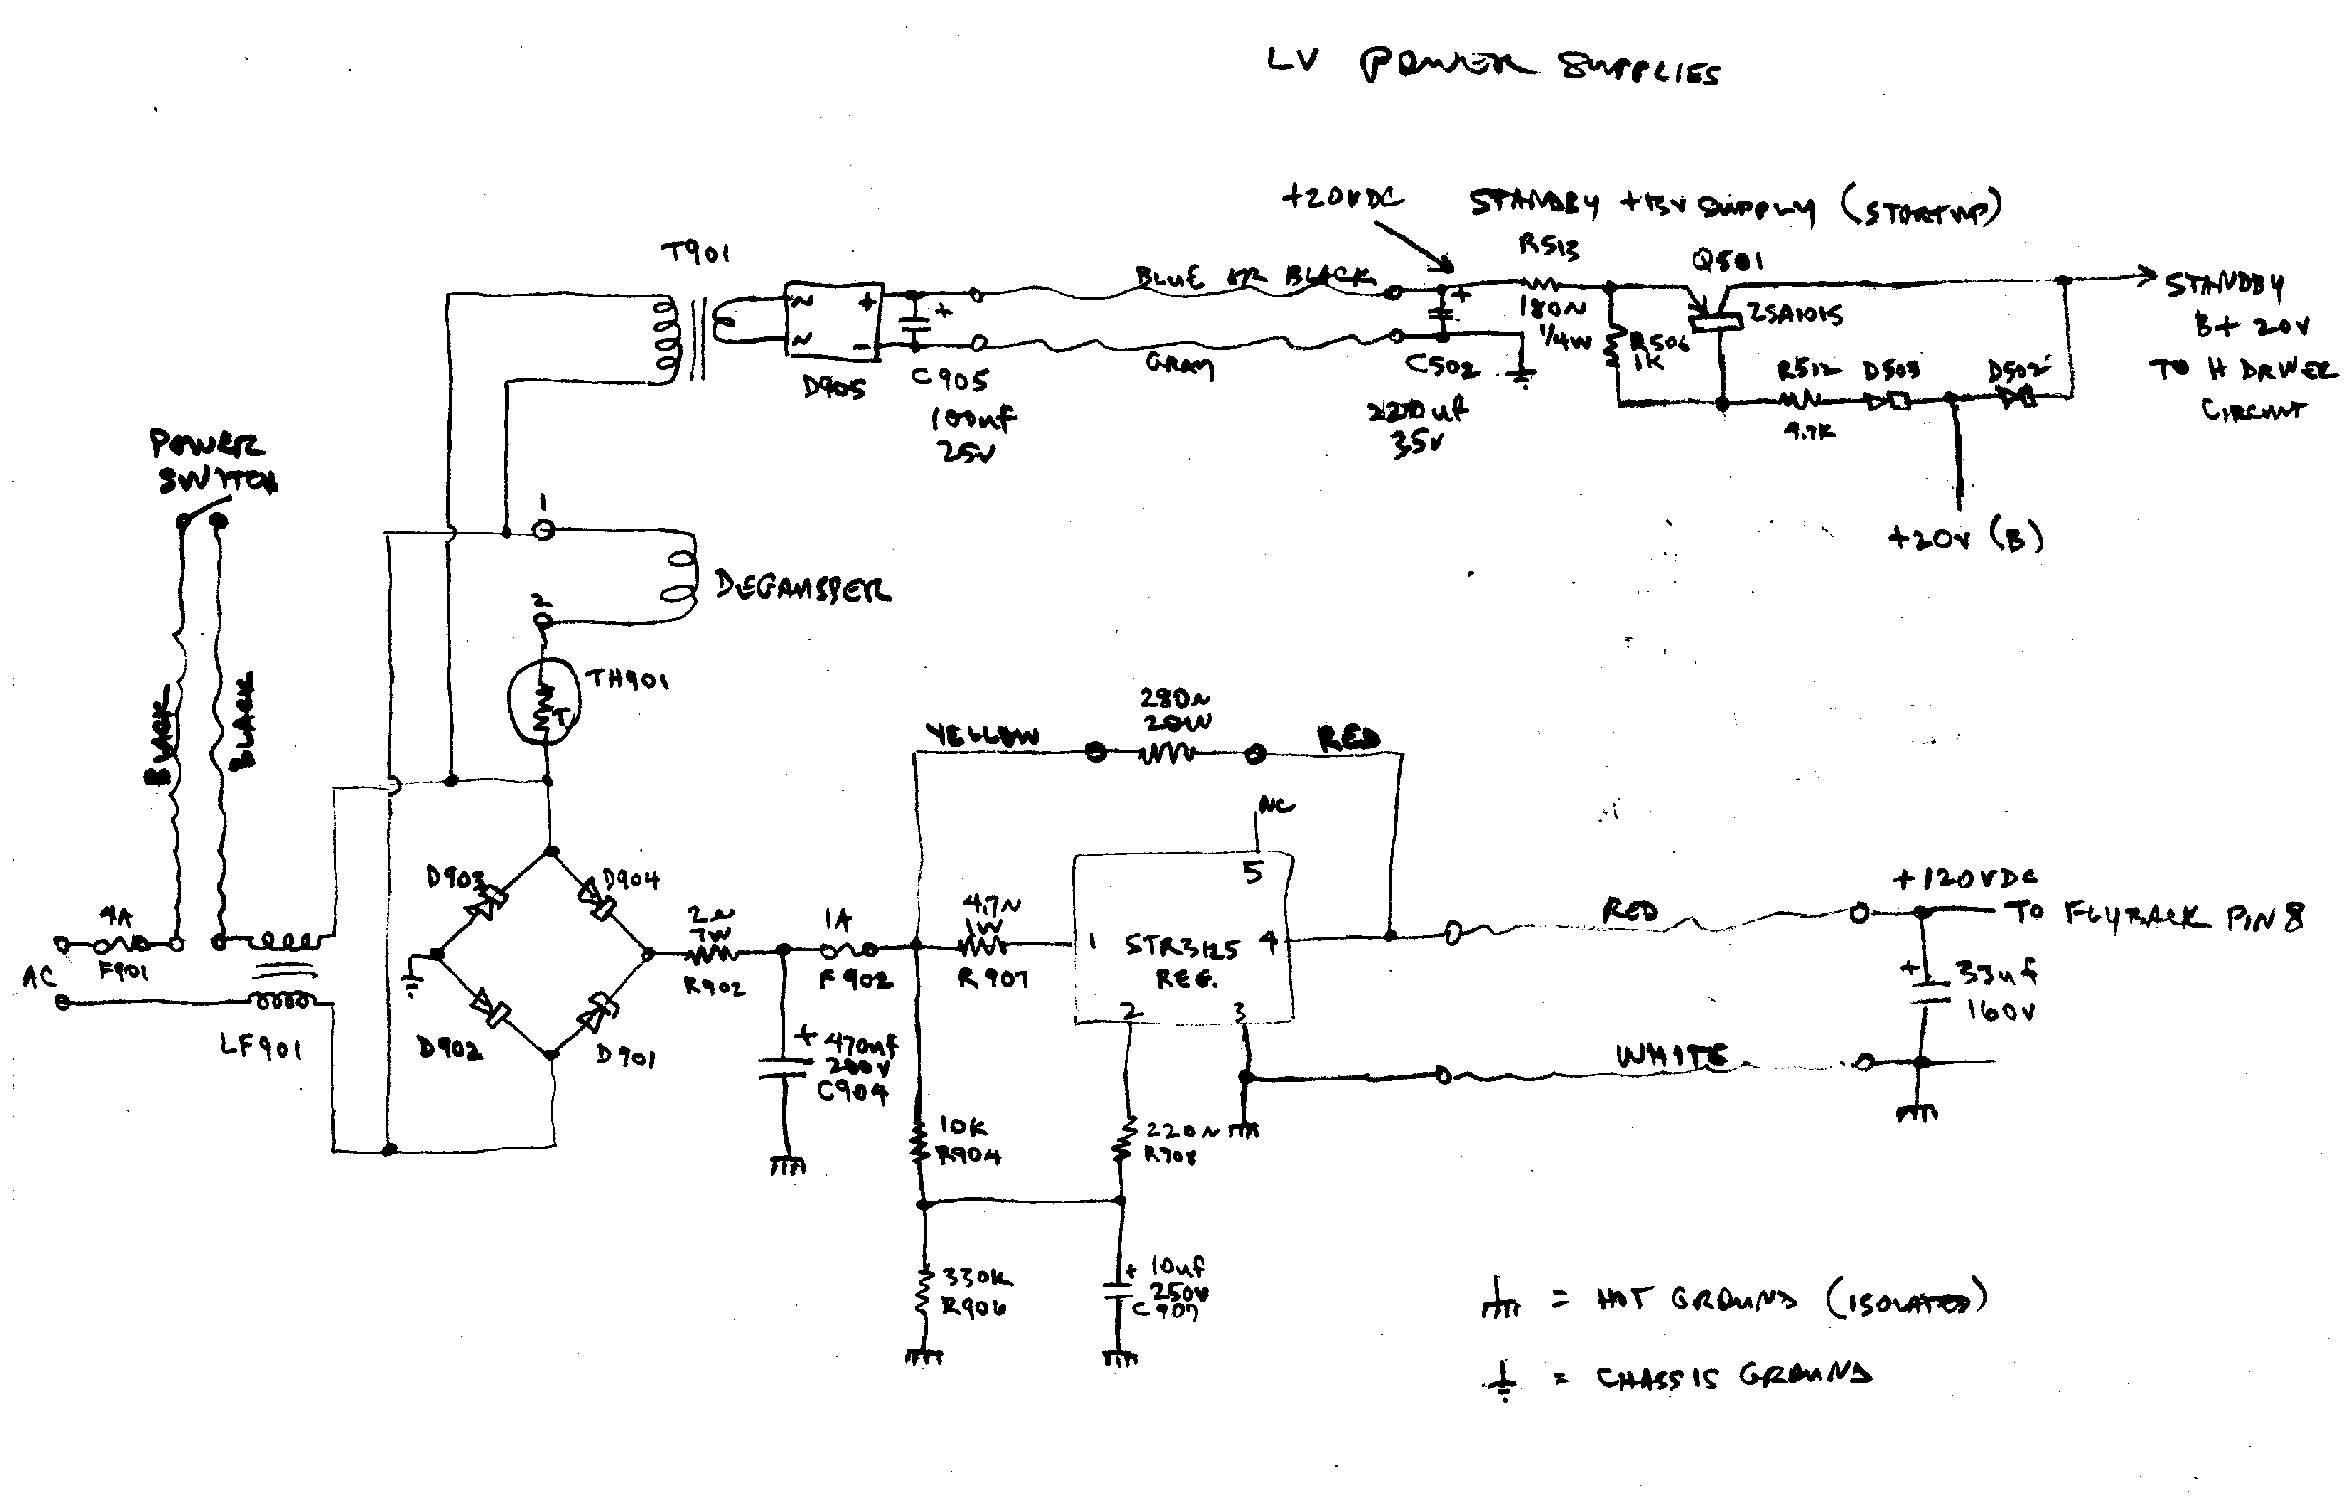 LV POWER SUPPLIES
+20VDC
STANDBY +15V SUPPLY (STARTUP)
T901
R513
Q501
BLUE OR BLACK
180Ω
1/4W
2SA1015
STANDBY
B+ 20V
TO H DRIVER
CIRCUIT
~
~
+
-
+
+
D905
C905
100uf
25V
GRAY
C502
35V
R506
1K
R512
D503
D502
4.7K
+20V (B)
POWER
SWITCH
1
2
DEGAUSSER
TH901
T
BLACK
BLACK
280Ω
20W
YELLOW
RED
NC
5
D903
D904
4A
F901
AC
LF901
D902
D901
2Ω
7W
R902
1A
F902
4.7Ω
1W
R907
1
STR3125
REG.
4
2
3
RED
+120VDC
TO FLYBACK PIN 8
+
33uf
160V
WHITE
+
470uf
200V
C904
10K
R904
220Ω
R908
330K
R906
+
10uf
250V
C907
= HOT GROUND (ISOLATED)
= CHASSIS GROUND